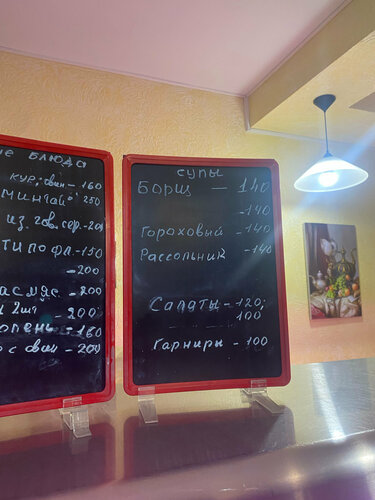 БЛЮДА
КУР; свин - 160
МИНТАЙ 250
из. гов. сер. - 20
ТИ ПО ФЛ. - 150
- 200
- 200
2 шт - 200
- 160
с свин - 200
СУПЫ
БОРЩ - 140
- 140
Гороховый - 140
Рассольник - 140
Салаты - 120;
100
Гарниры - 100